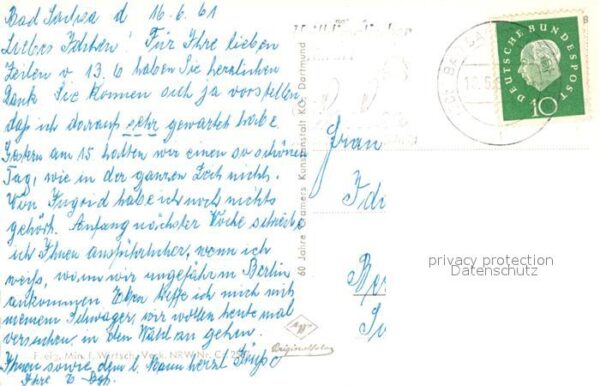 Bad Sachsa d 16.6.61
Liebes Idchen! Für Ihre lieben
Zeilen v 13.6 haben Sie herzlichen
Dank Sie können sich ja vorstellen
daß ich darauf sehr gewartet habe
Gestern am 15 hatten wir einen so schönen
Tag, wie in der ganzen Zeit nicht.
Von Ingrid habe ich noch nichts
gehört. Anfang nächster Woche schreibe
ich Ihnen ausführlicher, wenn ich
weiß, wann wir ungefähr in Berlin
ankommen Eben treffe ich mich mit
meinem Schwager, wir wollen heute mal
versuchen, in den Wald zu gehen.
Ihnen sowie dem l. Mann herzl Grüße
Ihre
Frau
60 Jahre Cramers Kunstanstalt KG, Dortmund
DEUTSCHE BUNDESPOST
10
privacy protection
Datenschutz
Originalfoto